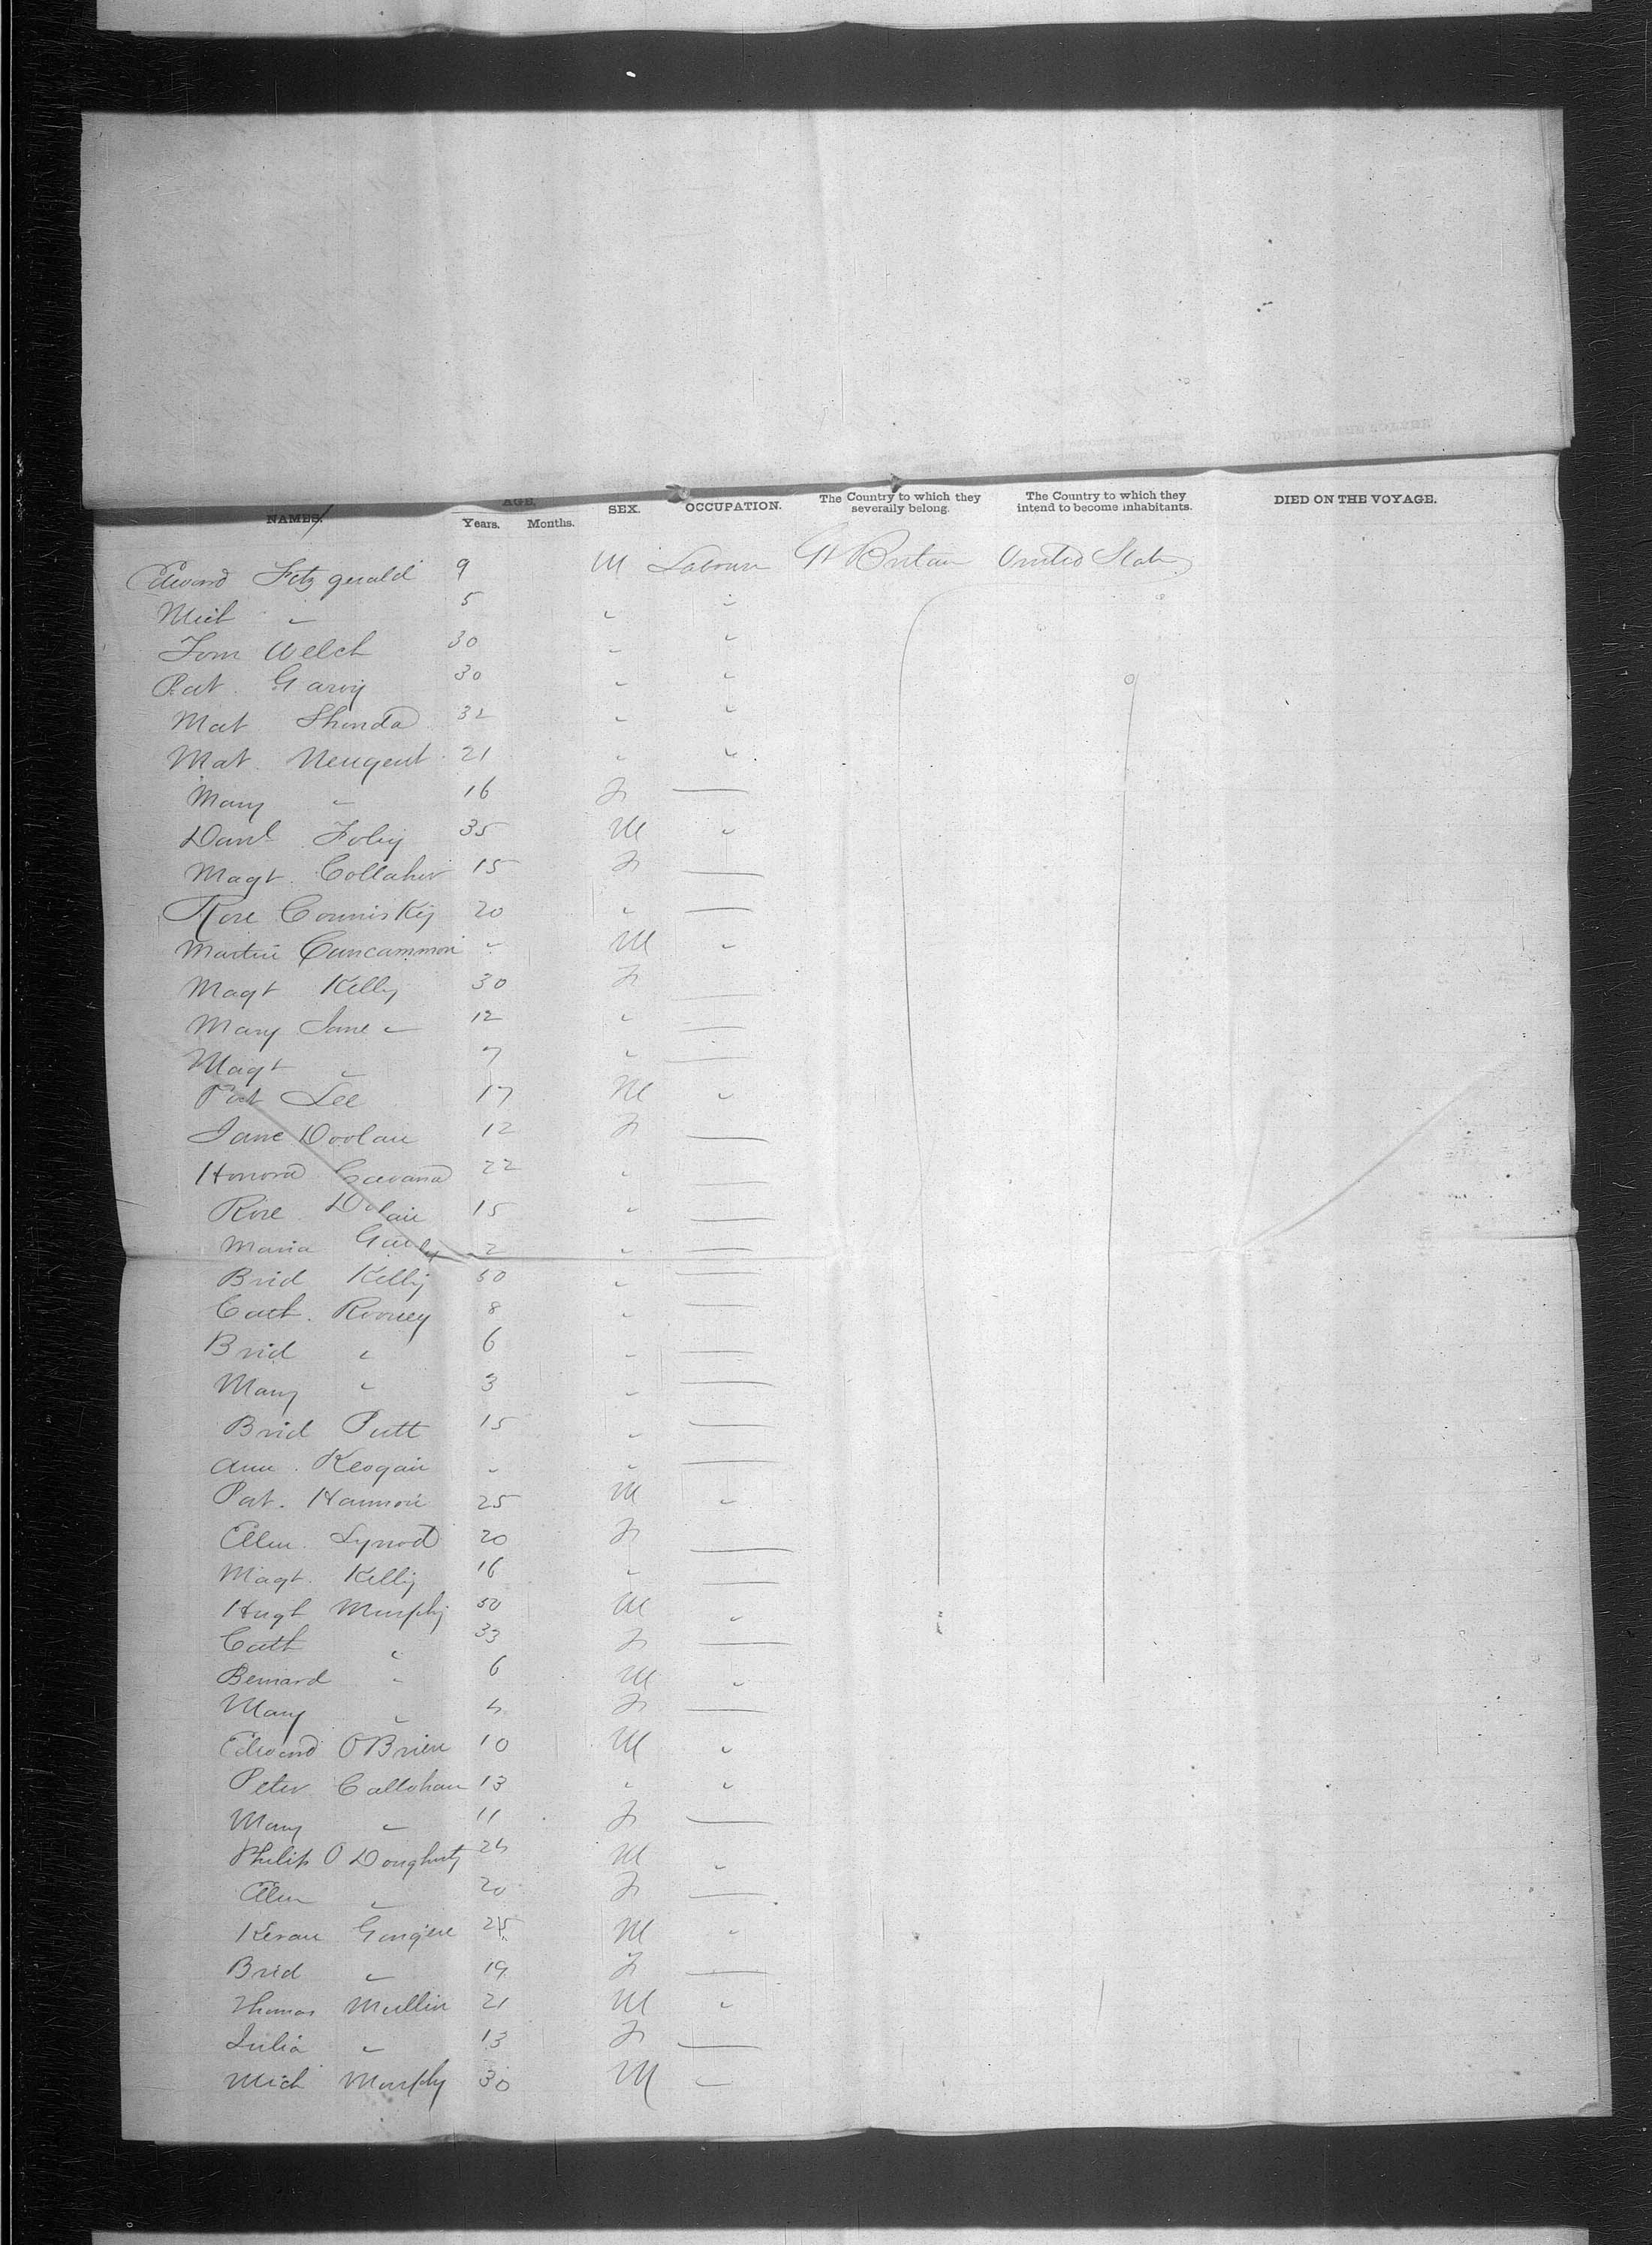 NAMES. AGE. Years. Months. SEX. OCCUPATION. The Country to which they severally belong. The Country to which they intend to become inhabitants. DIED ON THE VOYAGE.
Edward Fitzgerald 9 M Labourer Gt Britain United States
Mich " 5 " "
Tom Welch 30 " "
Pat. Garvy 30 " "
Mat 32 " "
Mat. Neugent 21 " "
Mary " 16 F —
Danl Foley 35 M "
Magt. Collaher 15 F —
Rose Comisky 20 " —
Martin Cuncammon " M "
Magt Kelly 30 F —
Mary Jane " 12 " —
Magt " 7 " —
Pat Lee 17 M "
Jane Doolan 12 F —
Honora 22 " —
Rose Dolan 15 " —
Maria 2 " —
Brid Kelly 50 " —
Cath. Rooney 8 " —
Brid " 6 " —
Mary " 3 " —
Brid Putt 15 " —
Ann. Keogan " " —
Pat. Hannon 25 M "
Ellen Synod 20 F —
Magt. Kelly 16 " —
Hugh Murphy 50 M "
Cath " 33 F —
Bernard " 6 M "
Mary " 4 F —
Edward OBrien 10 M "
Peter Callohan 13 " "
Mary " 11 F —
Philip O Dougherty 24 M "
Ellen " 20 F —
Keran 25 M "
Brid " 19 F —
Thomas Mullin 21 M "
Julia " 13 F —
Mich Murphy 30 M "